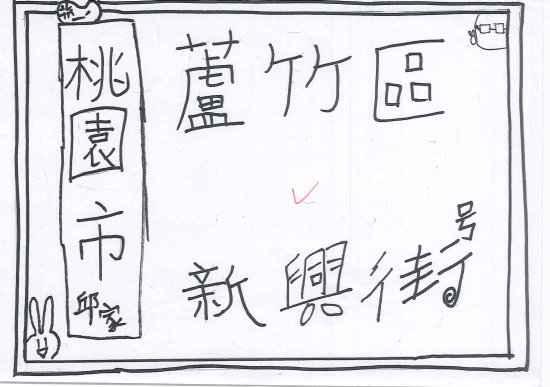 桃園市
邱家
蘆竹區
新興街
号